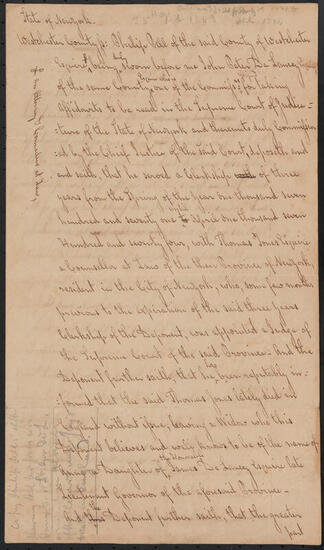 State of Newyork.
Westchester County ss. Philip Pell of the said County of Westchester
Esquire, being Sworn before me John Peter De Lancey
of the same County, one of the Commissrs. for taking
Affidavits to be used in the Supreme Court of Judica-
ture of the State of Newyork and thereunto duly Commission-
ed by the Chief Justice of the said Court, deposeth and
saith, that he served a Clerkship of three
years from the Spring of the Year one thousand seven
hundred and seventy one to April one thousand seven
Hundred and seventy four, with Thomas Jones Esquire
a Counsellor at Law of the then Province of Newyork,
resident in the City of Newyork, who, some few months
previous to the expiration of the said three years
Clerkship of the Deponent, was appointed a Judge of
the Supreme Court of the said Province. And the
Deponent further saith that he has been reputably in-
formed that the said Thomas Jones lately died in
England without issue, leaving a Widow who this
Deponent believes and well knows to be of the name of
a Daughter of the Honorable James De Lancey Esquire late
Lieutenant Governor of the aforesaid Province
And this Deponent further saith, that the greater
part